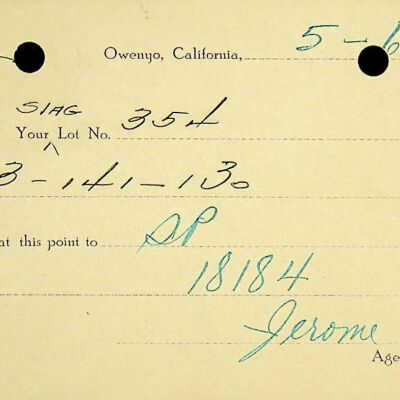 Owenyo, California, 5 - 6
SIAG
Your Lot No. 354
3 - 141 - 130
at this point to SP
18184
Jerome
Age